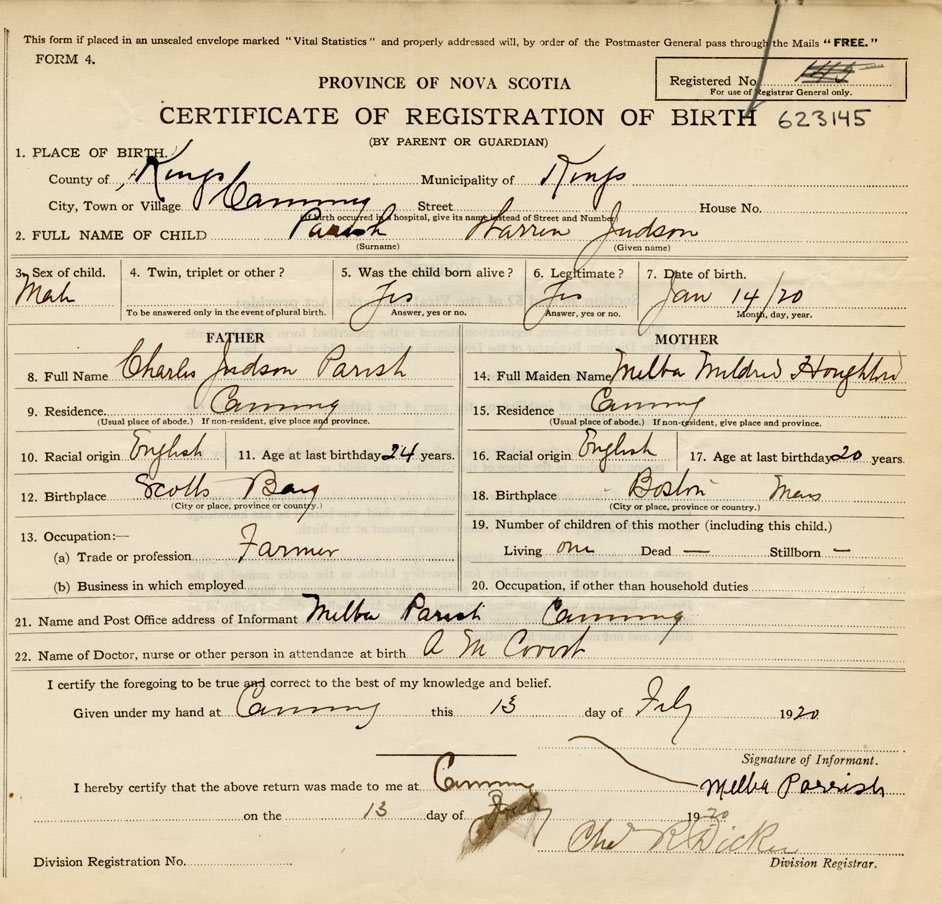 This form if placed in an unsealed envelope marked "Vital Statistics" and properly addressed will, by order of the Postmaster General pass through the Mails "FREE."
FORM 4.
PROVINCE OF NOVA SCOTIA
Registered No.
For use of Registrar General only.
CERTIFICATE OF REGISTRATION OF BIRTH 623145
(BY PARENT OR GUARDIAN)
1. PLACE OF BIRTH.
County of Kings Municipality of Kings
City, Town or Village Canning Street House No.
(If birth occurred in a hospital, give its name instead of Street and Number)
2. FULL NAME OF CHILD Parish Warren Judson
(Surname) (Given name)
3. Sex of child. 4. Twin, triplet or other? 5. Was the child born alive? 6. Legitimate? 7. Date of birth.
Male Yes Yes Jan 14/20
To be answered only in the event of plural birth. Answer, yes or no. Answer, yes or no. Month, day, year.
FATHER MOTHER
8. Full Name Charles Judson Parish 14. Full Maiden Name Melba Mildred
9. Residence. Canning 15. Residence Canning
(Usual place of abode.) If non-resident, give place and province. (Usual place of abode.) If non-resident, give place and province.
10. Racial origin English 11. Age at last birthday 24 years. 16. Racial origin English 17. Age at last birthday 20 years.
12. Birthplace Scotts Bay 18. Birthplace Boston Mass
(City or place, province or country.) (City or place, province or country.)
13. Occupation:— 19. Number of children of this mother (including this child.)
(a) Trade or profession Farmer Living one Dead — Stillborn —
(b) Business in which employed 20. Occupation, if other than household duties
21. Name and Post Office address of Informant Melba Parish Canning
22. Name of Doctor, nurse or other person in attendance at birth A M
I certify the foregoing to be true and correct to the best of my knowledge and belief.
Given under my hand at Canning this 13 day of 1920
Signature of Informant.
I hereby certify that the above return was made to me at Canning Melba Parrish
on the 13 day of 1920
Division Registration No. Division Registrar.